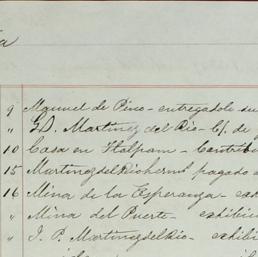 9 Manuel de Pino - entregadole su
" G.D. Martinez del Rio - C/. de
10 Casa en Tlalpam - Contrib
15 Martinez del Rio herms pagado
16 Mina de la Esperanza - exh
" Mina del Puerto - exhibici
" J. P. Martinez del Rio - exhibi